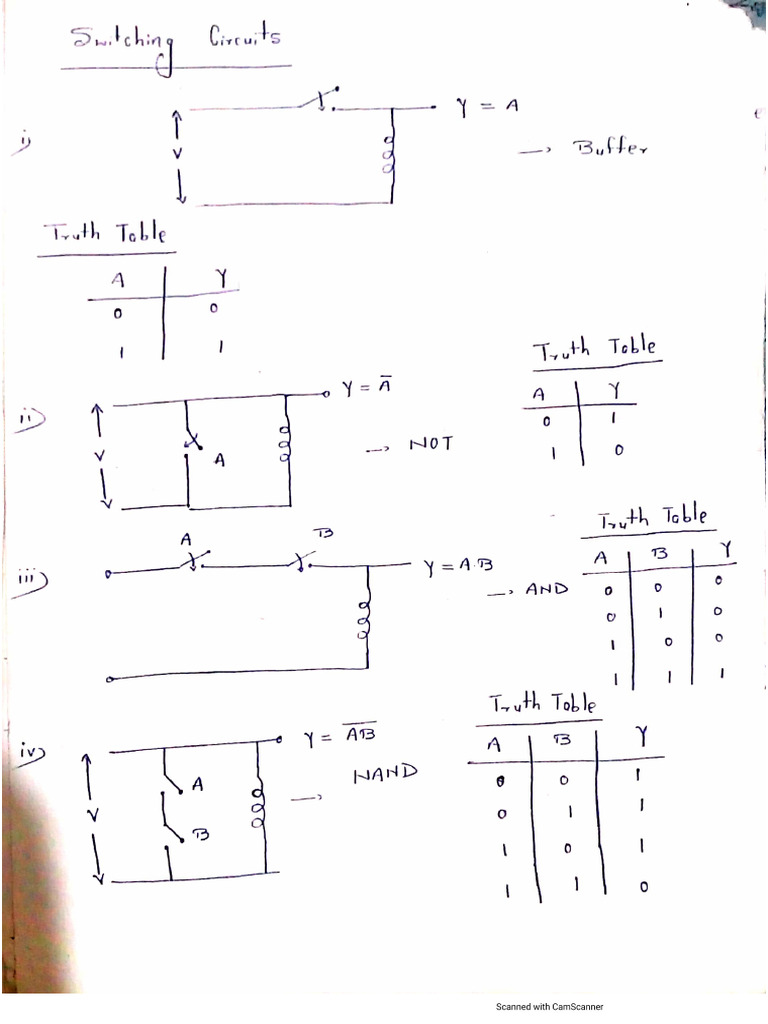 Switching Circuits
i)
V
Y = A
→ Buffer
Truth Table
A Y
0 0
1 1
ii)
V
A
Y = A̅
→ NOT
Truth Table
A Y
0 1
1 0
iii)
A B
Y = A.B
→ AND
Truth Table
A B Y
0 0 0
0 1 0
1 0 0
1 1 1
iv)
V
A
B
Y = A̅B̅
→ NAND
Truth Table
A B Y
0 0 1
0 1 1
1 0 1
1 1 0
Scanned with CamScanner